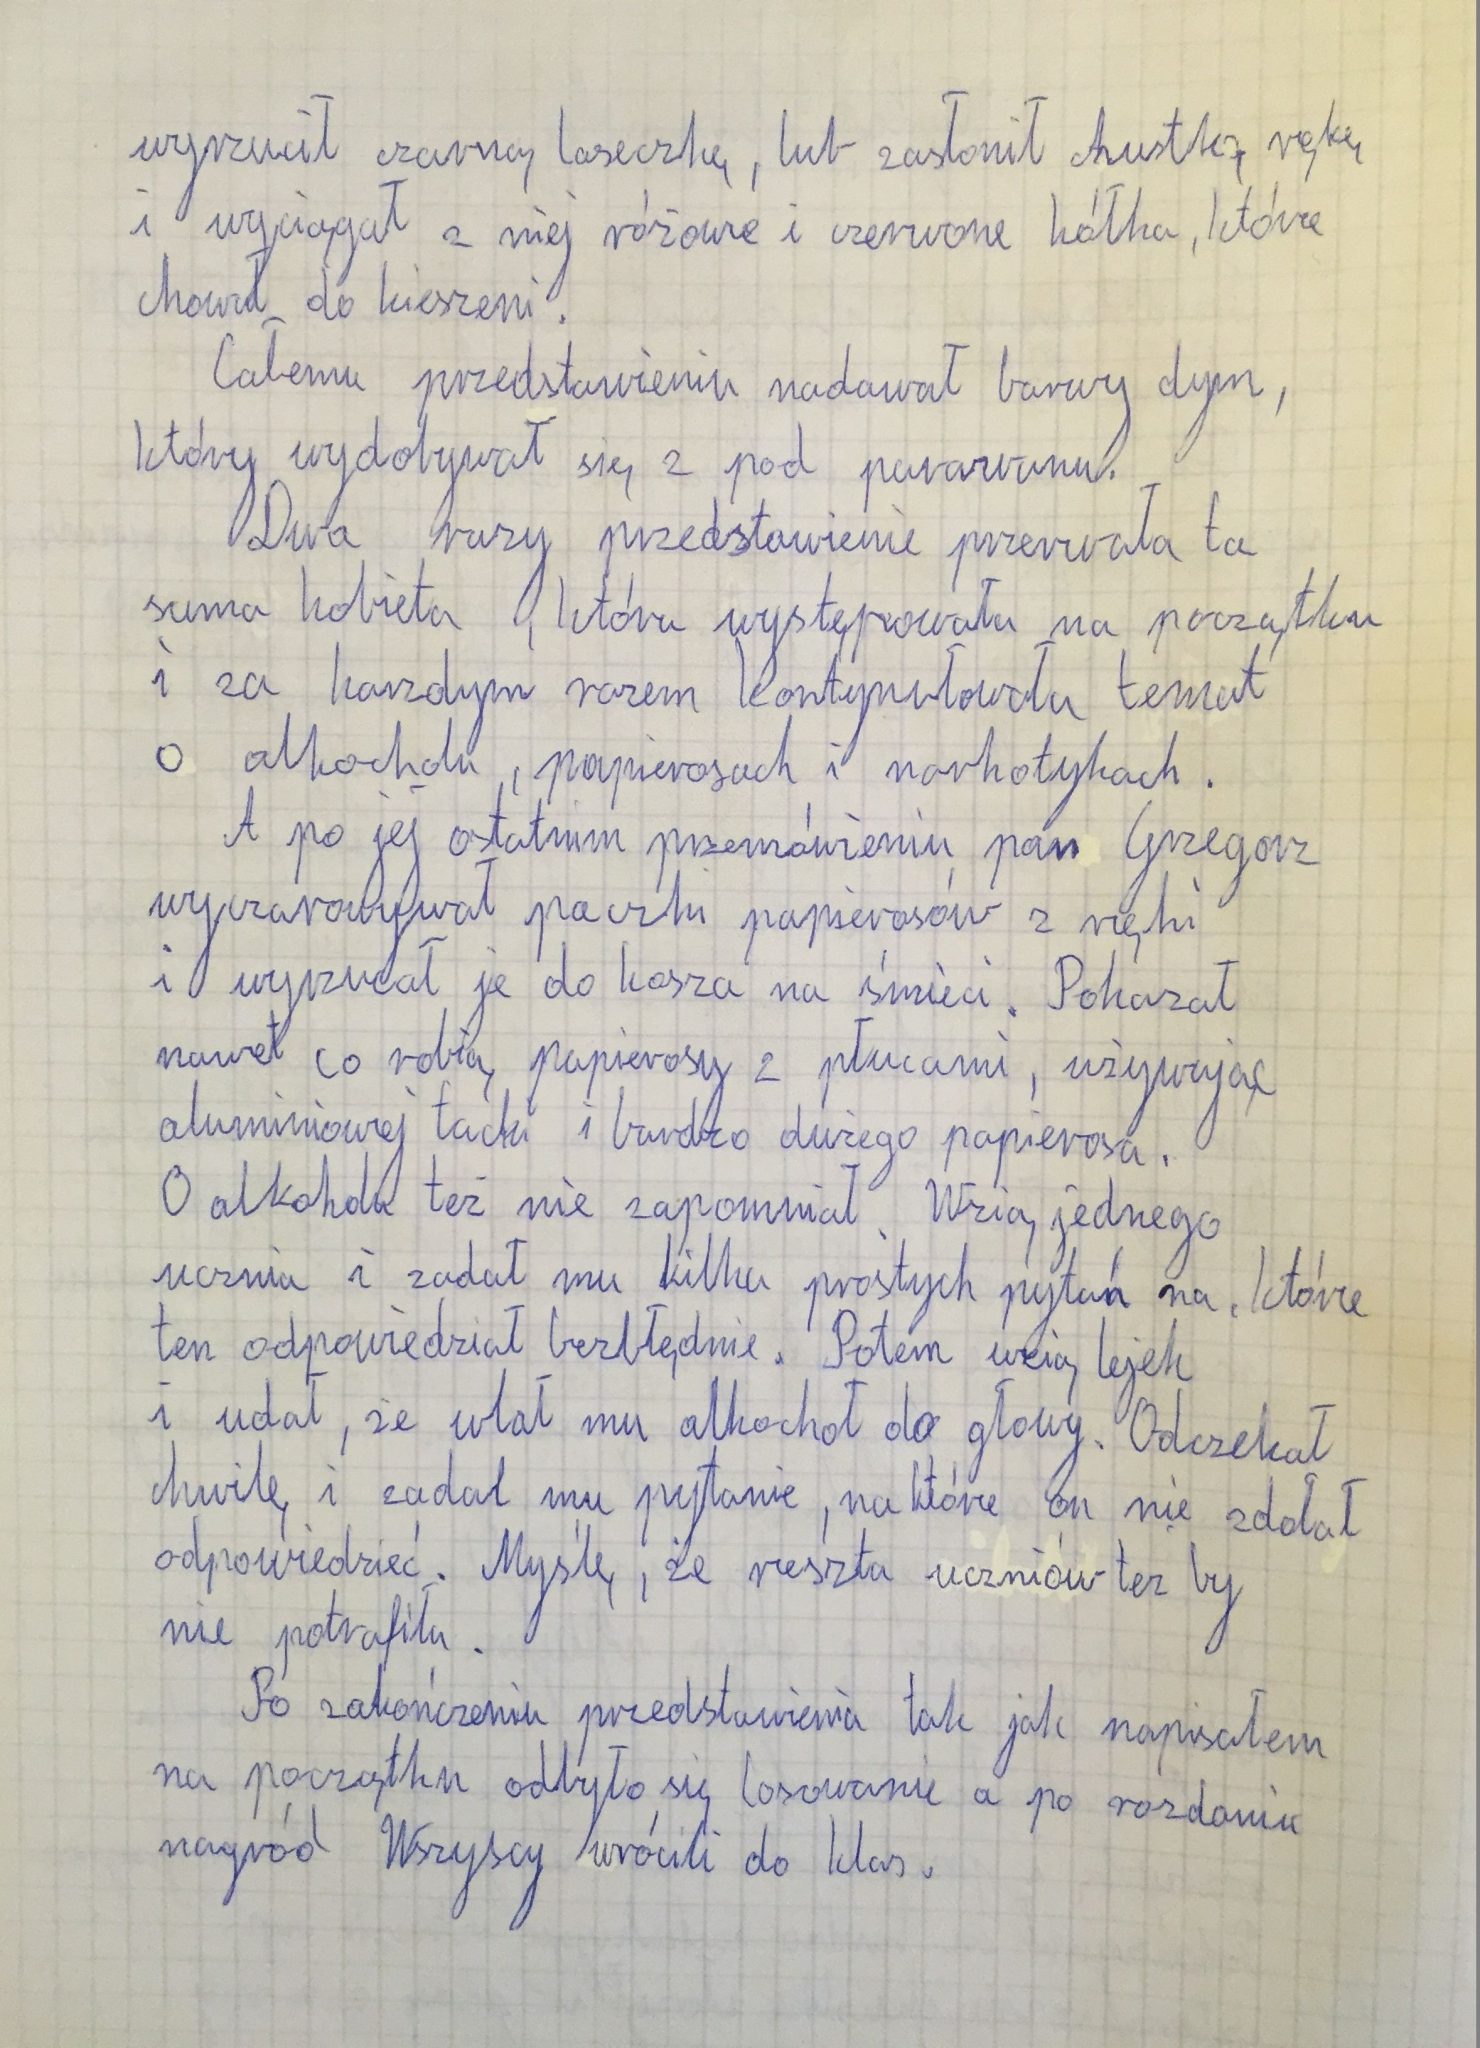 wyrzucił czarną laseczkę, lub zasłonił chustką rękę
i wyciągał z niej różowe i czerwone kółka, które
chował do kieszeni.
Całemu przedstawieniu nadawał barwy dym,
który wydobywał się z pod parawanu.
Dwa razy przedstawienie przerwała ta
sama kobieta, która występowała na początku
i za karzdym razem kontynułowała temat
o alkocholu, papierosach i narkotykach.
A po jej ostatnim przemówieniu pan Grzegorz
wyczarowywał paczki papierosów z ręki
i wyrzucał je do kosza na śmieci. Pokazał
nawet co robią papierosy z płucami, używając
aluminiowej tacki i bardzo dużego papierosa.
O alkoholu też nie zapomniał. Wzią jednego
ucznia i zadał mu kilka prostych pytań na, które
ten odpowiedział bezbłędnie. Potem wzią lejek
i udał, że wlał mu alkochol do głowy. Odczekał
chwilę i zadał mu pytanie, na które on nie zdołał
odpowiedzieć. Myślę, że reszta uczniów też by
nie potrafiła.
Po zakończeniu przedstawienia tak jak napisałem
na początku odbyło się losowanie a po rozdaniu
nagród Wszyscy wrócili do klas.